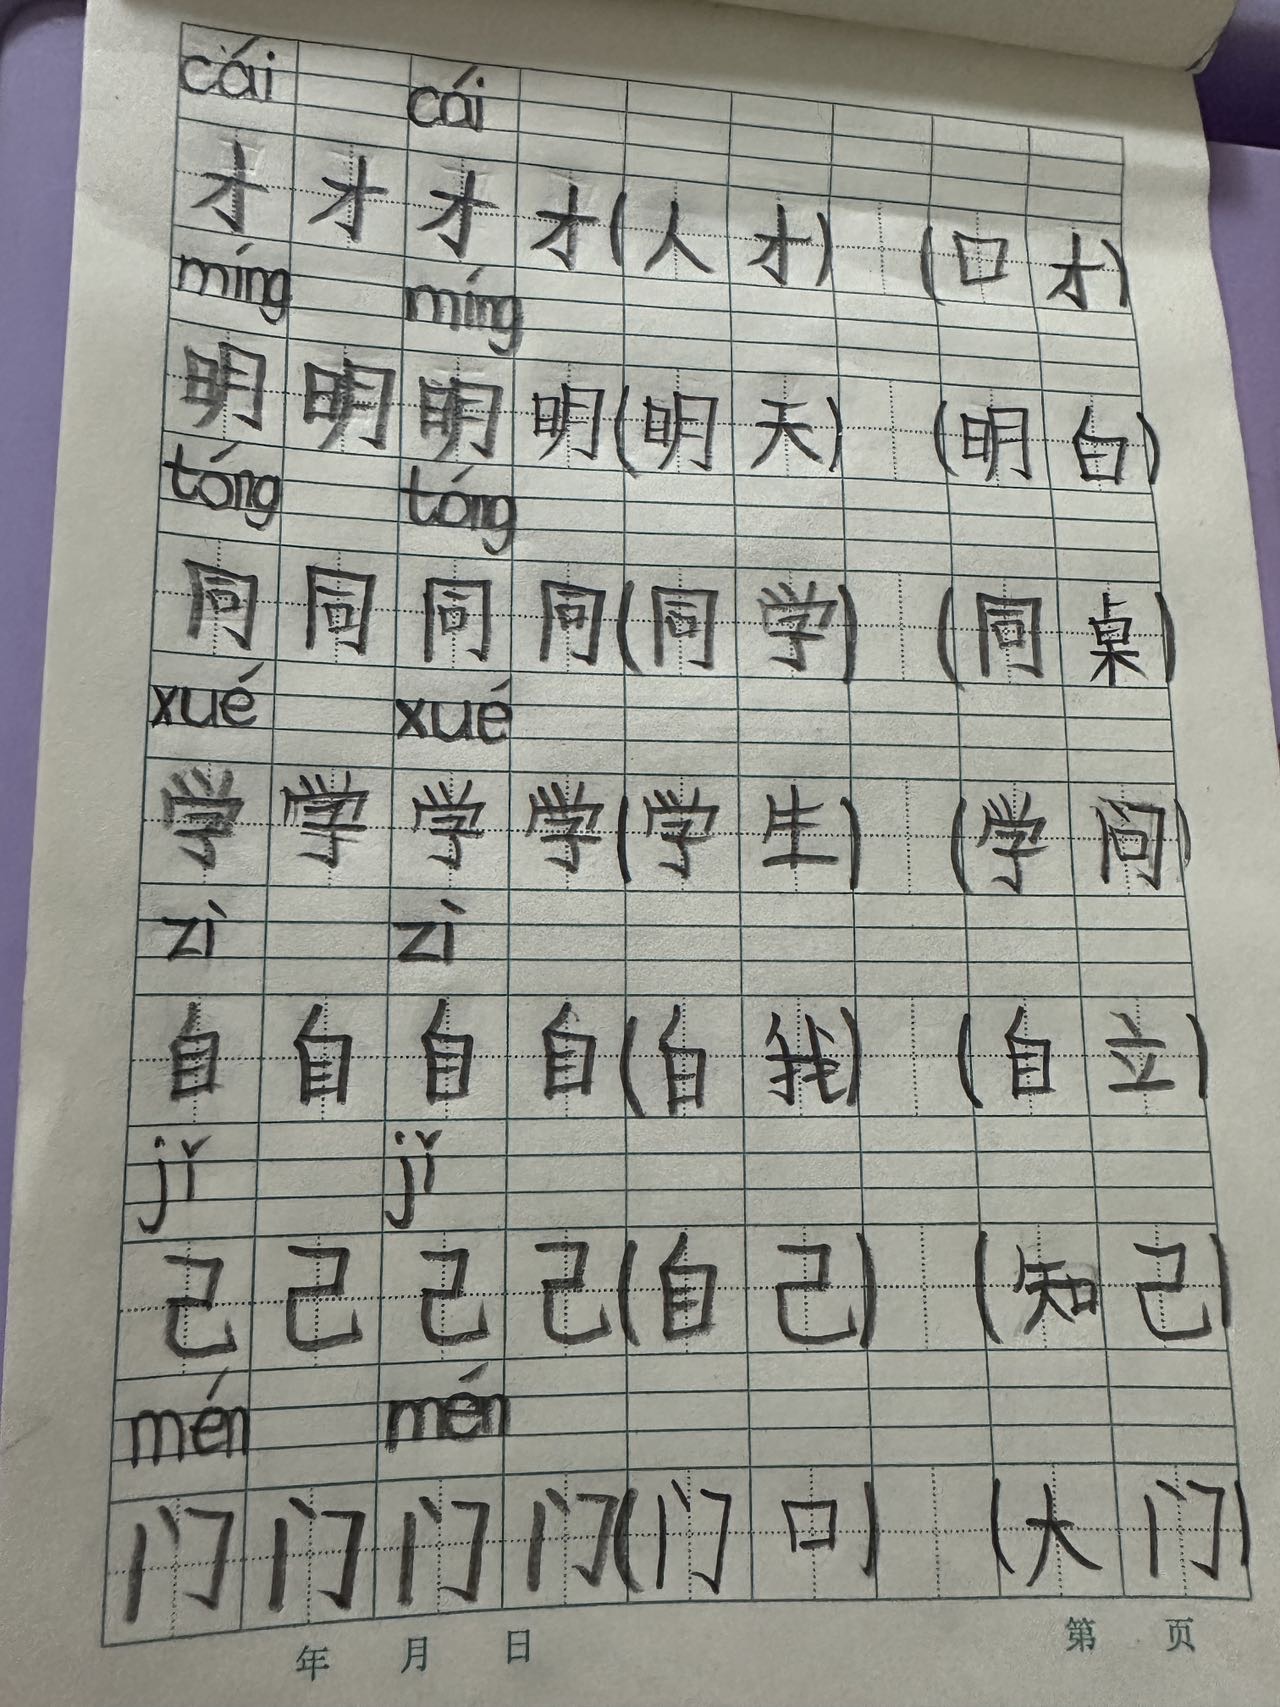 cái cái
才 才 才 才 (人 才) (口 才)
míng míng
明 明 明 明 (明 天) (明 白)
tóng tóng
同 同 同 同 (同 学) (同 桌)
xué xué
学 学 学 学 (学 生) (学 问)
zì zì
自 自 自 自 (自 我) (自 立)
jǐ jǐ
己 己 己 己 (自 己) (知 己)
mén mén
门 门 门 门 (门 口) (大 门)
年 月 日 第 页